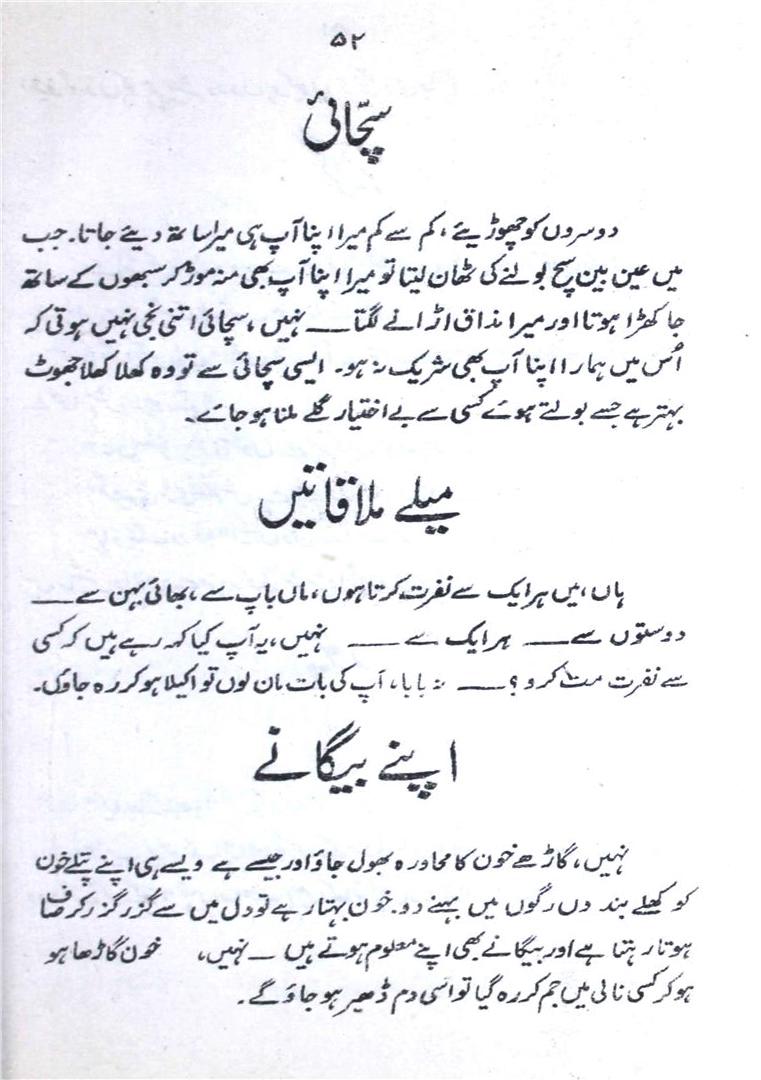 ۵۲
سچّائی
دوسروں کو چھوڑیئے، کم سے کم میرا اپنا آپ ہی میرا ساتھ دیئے جاتا۔ جب
میں عین بین سچ بولنے کی ٹھان لیتا تو میرا اپنا آپ بھی منہ موڑ کر سبھوں کے ساتھ
جا کھڑا ہوتا اور میرا مذاق اڑانے لگتا —— نہیں، سچائی اتنی نجی نہیں ہوتی کہ
اُس میں ہمارا اپنا آپ بھی شریک نہ ہو۔ ایسی سچائی سے تو وہ کھلا کھلا جھوٹ
بہتر ہے جسے بولتے ہوئے کسی سے بے اختیار گلے ملنا ہو جائے۔
میلے ملاقاتیں
ہاں، میں ہر ایک سے نفرت کرتا ہوں، ماں باپ سے، بھائی بہن سے ——
دوستوں سے —— ہر ایک سے —— نہیں، یہ آپ کیا کہہ رہے ہیں کہ کسی
سے نفرت مت کرو؟ —— نہ بابا، آپ کی بات مان لوں تو اکیلا ہو کر رہ جاؤں۔
اپنے بیگانے
نہیں، گاڑھے خون کا محاورہ بھول جاؤ اور جیسے ہے ویسے ہی اپنے پتلے خون
کو کھلے بندوں رگوں میں بہنے دو۔ خون بہتا رہے تو دل میں سے گزر گزر کر صاف
ہوتا رہتا ہے اور بیگانے بھی اپنے معلوم ہوتے ہیں — نہیں، خون گاڑھا ہو
ہو کر کسی نالی میں جم کر رہ گیا تو اسی دم ڈھیر ہو جاؤ گے۔